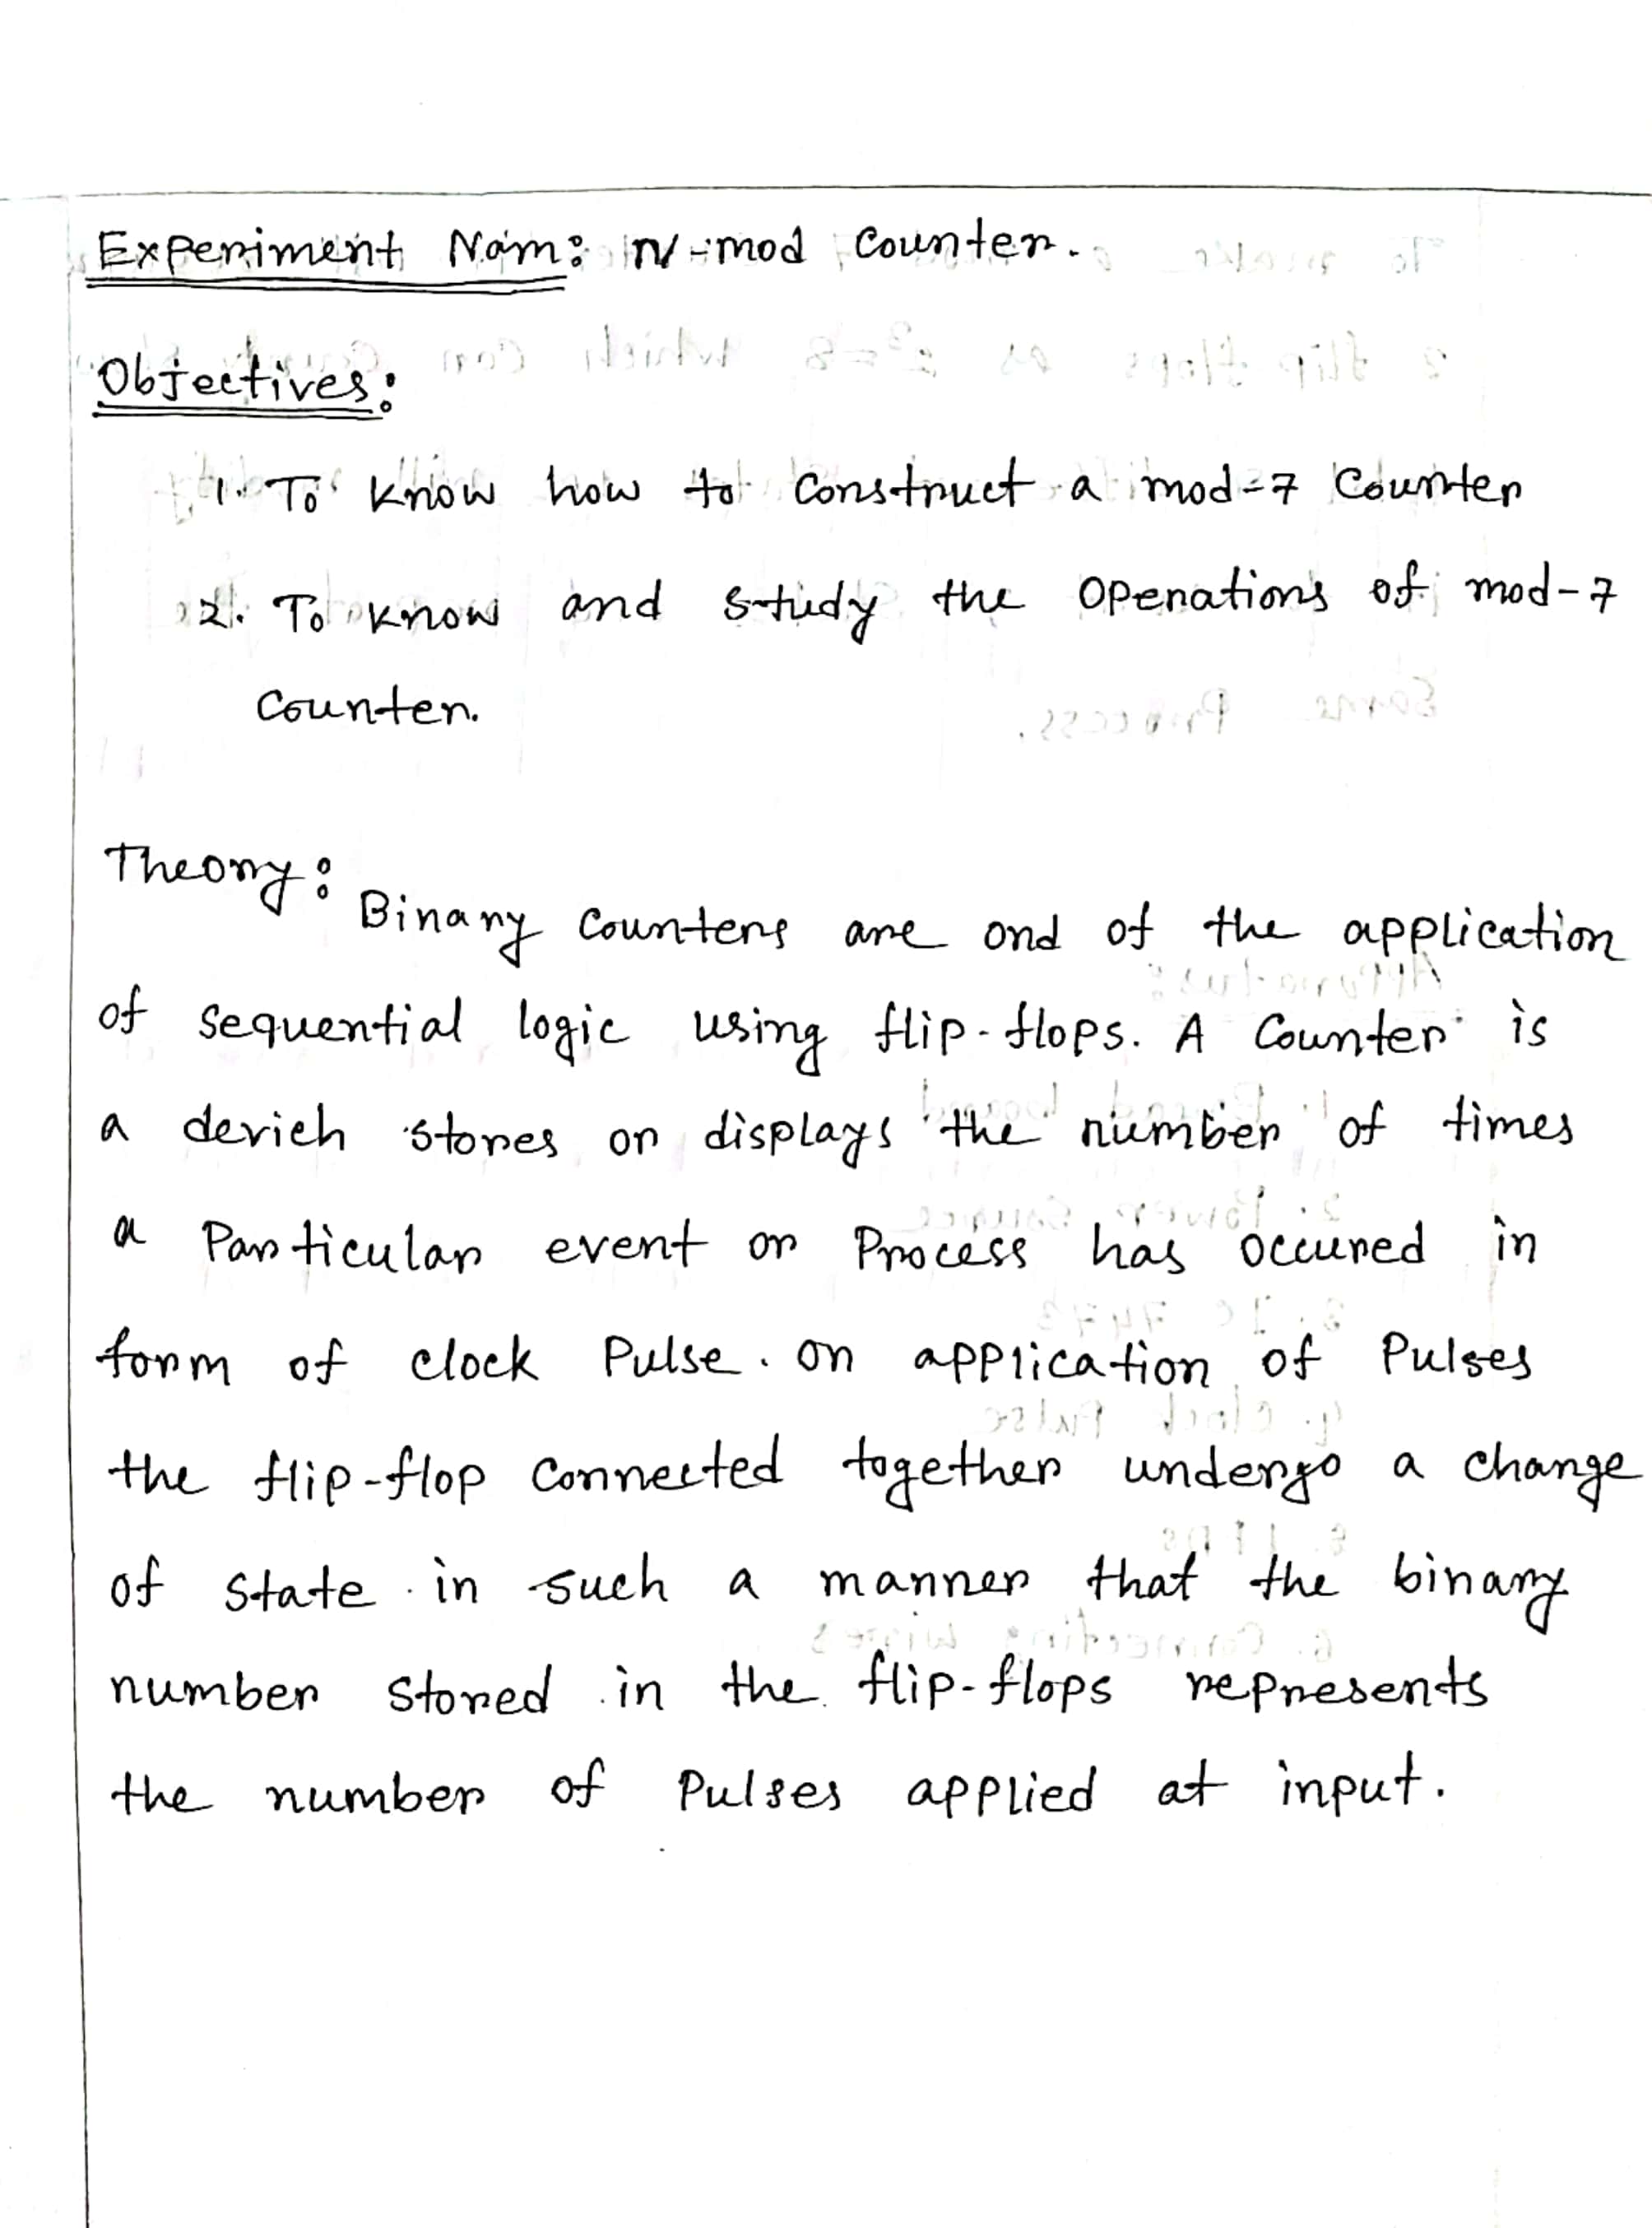 Experiment Nam: N-mod Counter.
Objectives:
1. To know how to construct a mod-7 Counter
2. To know and study the Operations of mod-7
Counter.
Theory:
Binary Counters are ond of the application
of sequential logic using flip-flops. A Counter is
a derich stores or displays the number of times
a Particular event or Process has occured in
form of clock Pulse. on application of Pulses
the flip-flop connected together undergo a change
of state in such a manner that the binary
number stored in the flip-flops represents
the number of Pulses applied at input.